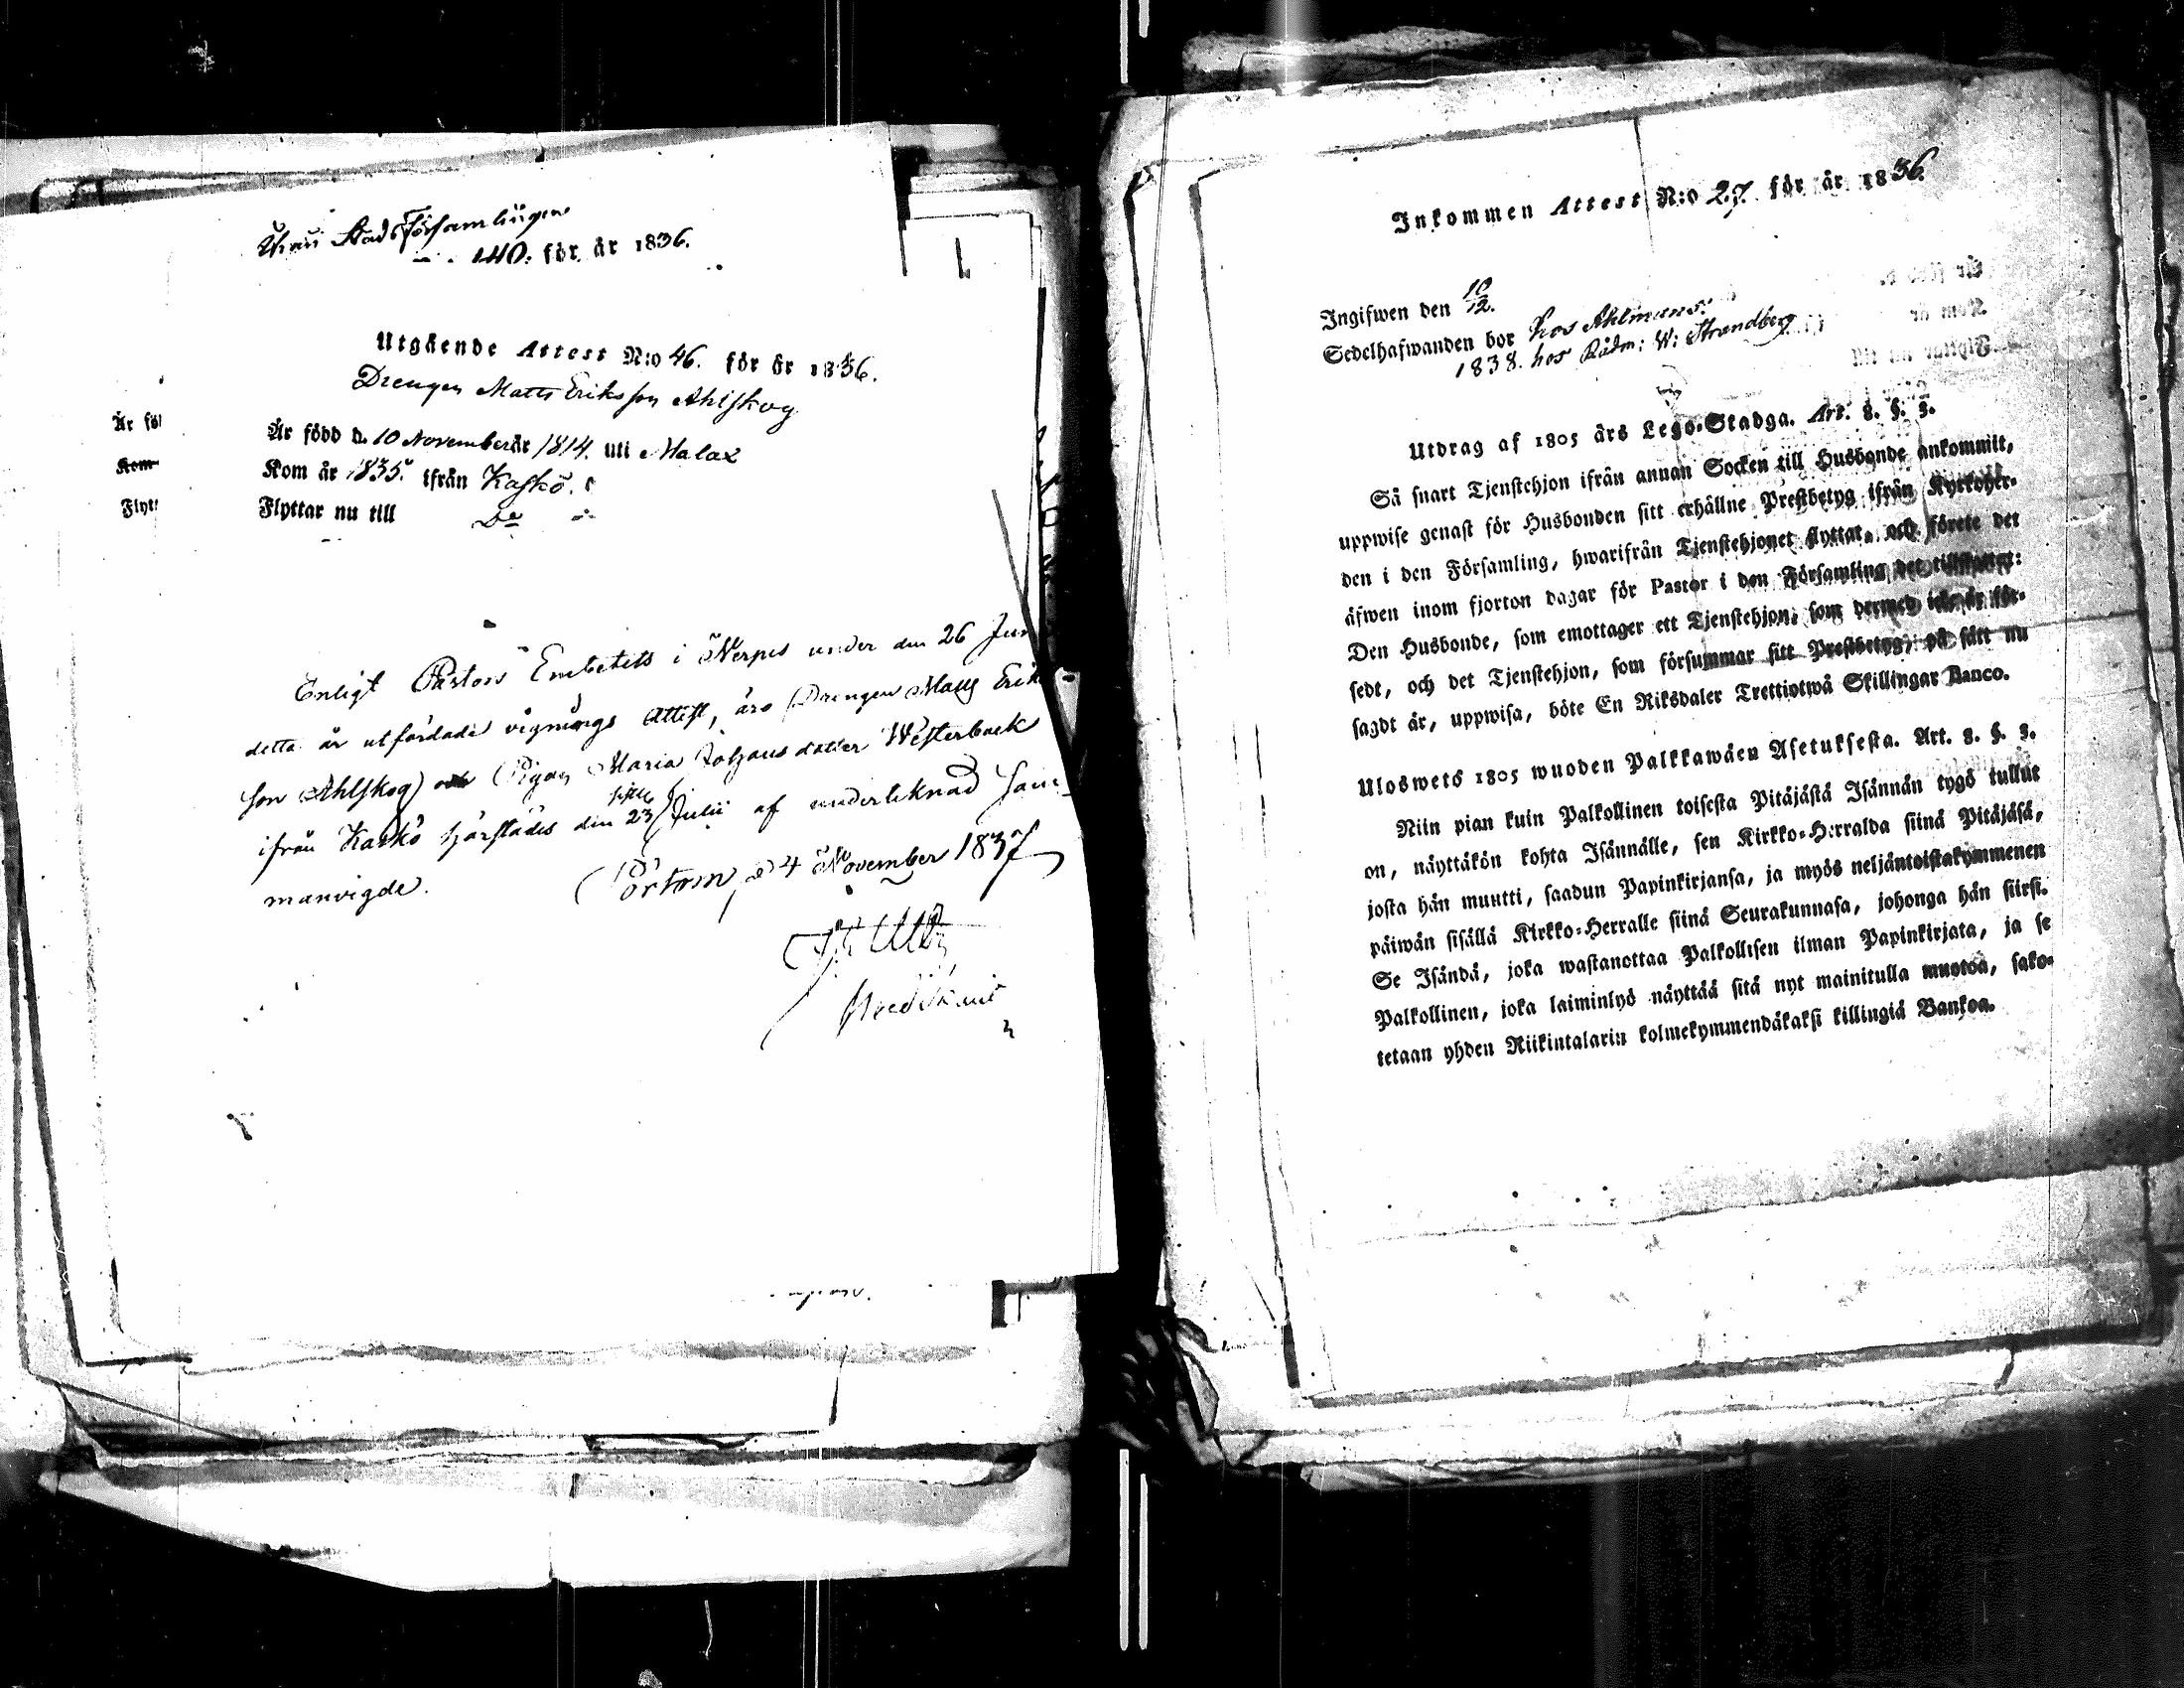 Stads Församlingen
140. för år 1836.
Utgående Attest N:o 46. för år 1836.
Drengen Matts Eriksson Ahlskog
Är föd
Är född d. 10 November år 1814. uti Malax
Kom
Kom år 1835. ifrån Kaskö.
Flytt
Flyttar nu till Do
Enligt Pastors Embetets i Nerpes under den 26 Jun
detta år utfärdade vignings Attest, äro Drengen Matts Erik
son Ahlskog och Pigan Maria Johans dotter Westerback
ifrån Kaskö härstädes den 23 sistl. Julii af underteknad sam-
manvigde.
Pörtom, d 4 November 1837
Inkommen Attest N:o 27. för år 1836.
Ingifwen den 10/12.
Sedelhafwanden bor hos Ahlmans.
1838. hos Rådm: W: Strandberg
Utdrag af 1805 års Lego-Stadga. Art. 8. §. 3.
Så snart Tjenstehjon ifrån annan Socken till Husbonde ankommit,
uppwise genast för Husbonden sitt erhållne Prestbetyg ifrån Kyrkoher-
den i den Församling, hwarifrån Tjenstehjonet flyttat, och förete det
äfwen inom fjorton dagar för Pastor i den Församling det tillflyttat:
Den Husbonde, som emottager ett Tjenstehjon, som dermed icke är för-
sedt, och det Tjenstehjon, som försummar sitt Prestbetyg, på sätt nu
sagdt är, uppwisa, böte En Riksdaler Trettiotwå Skillingar Banco.
Uloswetö 1805 wuoden Palkkawäen Asetuksesta. Art. 8. §. 3.
Niin pian kuin Palkollinen toisesta Pitäjästä Isännän tygö tullut
on, näyttäkön kohta Isännälle, sen Kirkko-Herralda siinä Pitäjäsä,
josta hän muutti, saadun Papinkirjansa, ja myös neljäntoistakymmenen
päiwän sisällä Kirkko-Herralle siinä Seurakunnasa, johonga hän siirsi.
Se Isändä, joka wastanottaa Palkollisen ilman Papinkirjata, ja se
Palkollinen, joka laiminlyö näyttää sitä nyt mainitulla muotoa, sako-
tetaan yhden Riikintalarin kolmekymmendäkaksi killingiä Bankoa.